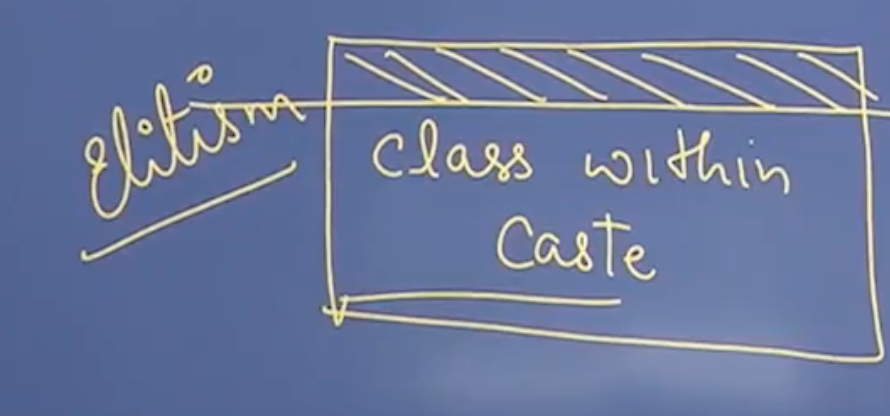 Elitism
Class within
Caste